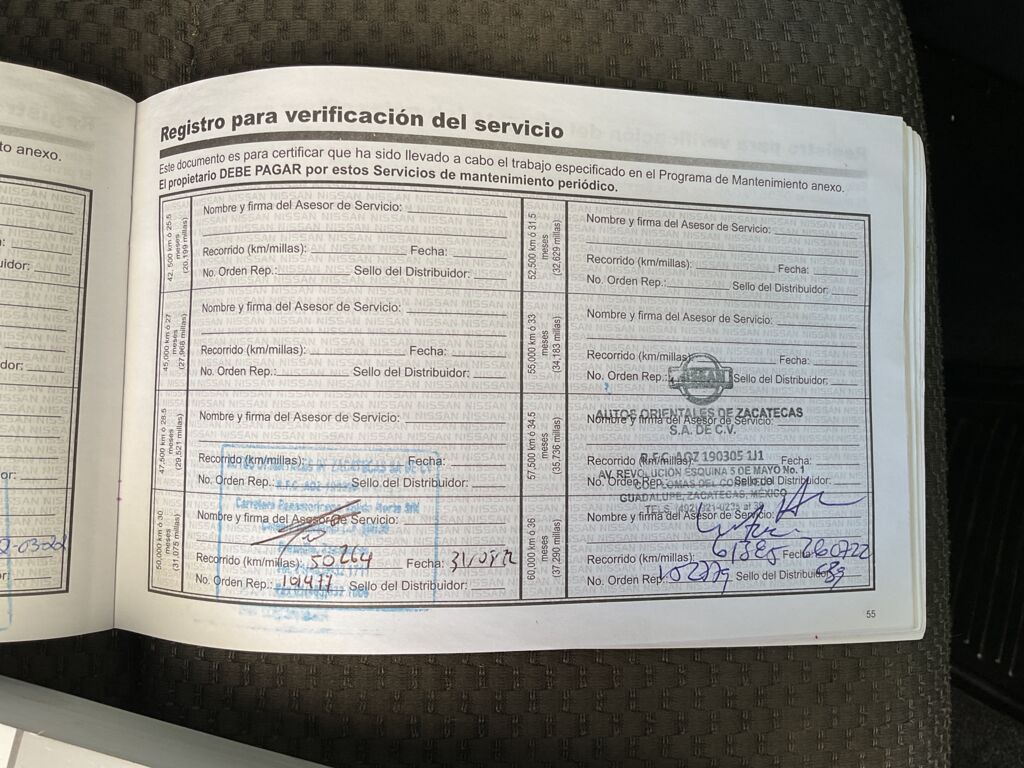 to anexo.
Registro para verificación del servicio
Este documento es para certificar que ha sido llevado a cabo el trabajo especificado en el Programa de Mantenimiento anexo.
El propietario DEBE PAGAR por estos Servicios de mantenimiento periódico.
42,500 km ó 25.5
meses
Nombre y firma del Asesor de Servicio:
Recorrido (km/millas): Fecha:
No. Orden Rep.: Sello del Distribuidor:
45,000 km ó 27
meses
(27,968 millas)
Nombre y firma del Asesor de Servicio:
Recorrido (km/millas): Fecha:
No. Orden Rep.: Sello del Distribuidor:
47,500 km ó 28.5
meses
(29,521 millas)
Nombre y firma del Asesor de Servicio:
Recorrido (km/millas): Fecha:
No. Orden Rep.: Sello del Distribuidor:
50,000 km ó 30
meses
(31,075 millas)
Nombre y firma del Asesor de Servicio:
Recorrido (km/millas): 50264 Fecha: 31/08/2
No. Orden Rep.: 19477 Sello del Distribuidor:
52,500 km ó 31.5
meses
(32,629 millas)
Nombre y firma del Asesor de Servicio:
Recorrido (km/millas): Fecha:
No. Orden Rep.: Sello del Distribuidor:
55,000 km ó 33
meses
(34,183 millas)
Nombre y firma del Asesor de Servicio:
Recorrido (km/millas): Fecha:
No. Orden Rep.: Sello del Distribuidor:
57,500 km ó 34.5
meses
(35,736 millas)
Nombre y firma del Asesor de Servicio:
Recorrido (km/millas): Fecha:
No. Orden Rep.: Sello del Distribuidor:
60,000 km ó 36
meses
(37,290 millas)
Nombre y firma del Asesor de Servicio:
Recorrido (km/millas): Fecha: 260722
No. Orden Rep.: 102779 Sello del Distribuidor:
NISSAN
AUTOS ORIENTALES DE ZACATECAS
S.A. DE C.V.
R.F.C. AOZ 190305 1J1
AV. REVOLUCION ESQUINA 5 DE MAYO No. 1
GUADALUPE, ZACATECAS, MÉXICO
55